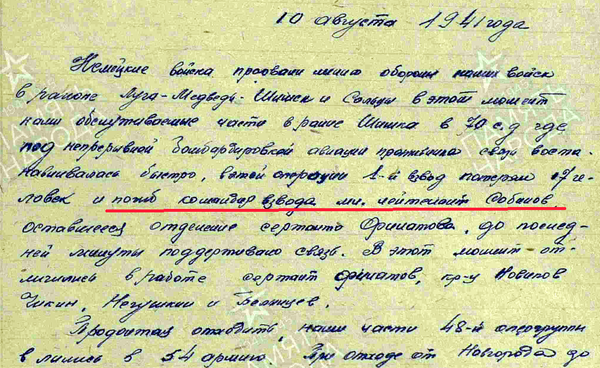 10 августа 1941 года
Немецкие войска прорвали линию обороны наших войск
в районе Луга-Медведь-Шимск и Сольцы в этот момент
нами обслуживаемые части в раионе Шимска в 70 с.д где
под непрерывной бомбардировкой авиации противника связь воста-
навливалась быстро, в этой операции 1-й взвод потерял 17 че-
ловек и погиб командир взвода мл. лейтенант Собанов,
оставшееся отделение сержанта Филатова, до послед-
ней минуты поддерживало связь. В этот момент от-
личились в работе сержант Филатов, кр-цы
Чикин, Негушкин и
Продолжая отходить, наши части 48-й опергруппы
влились в 54 армию. При отходе от Новгорода до